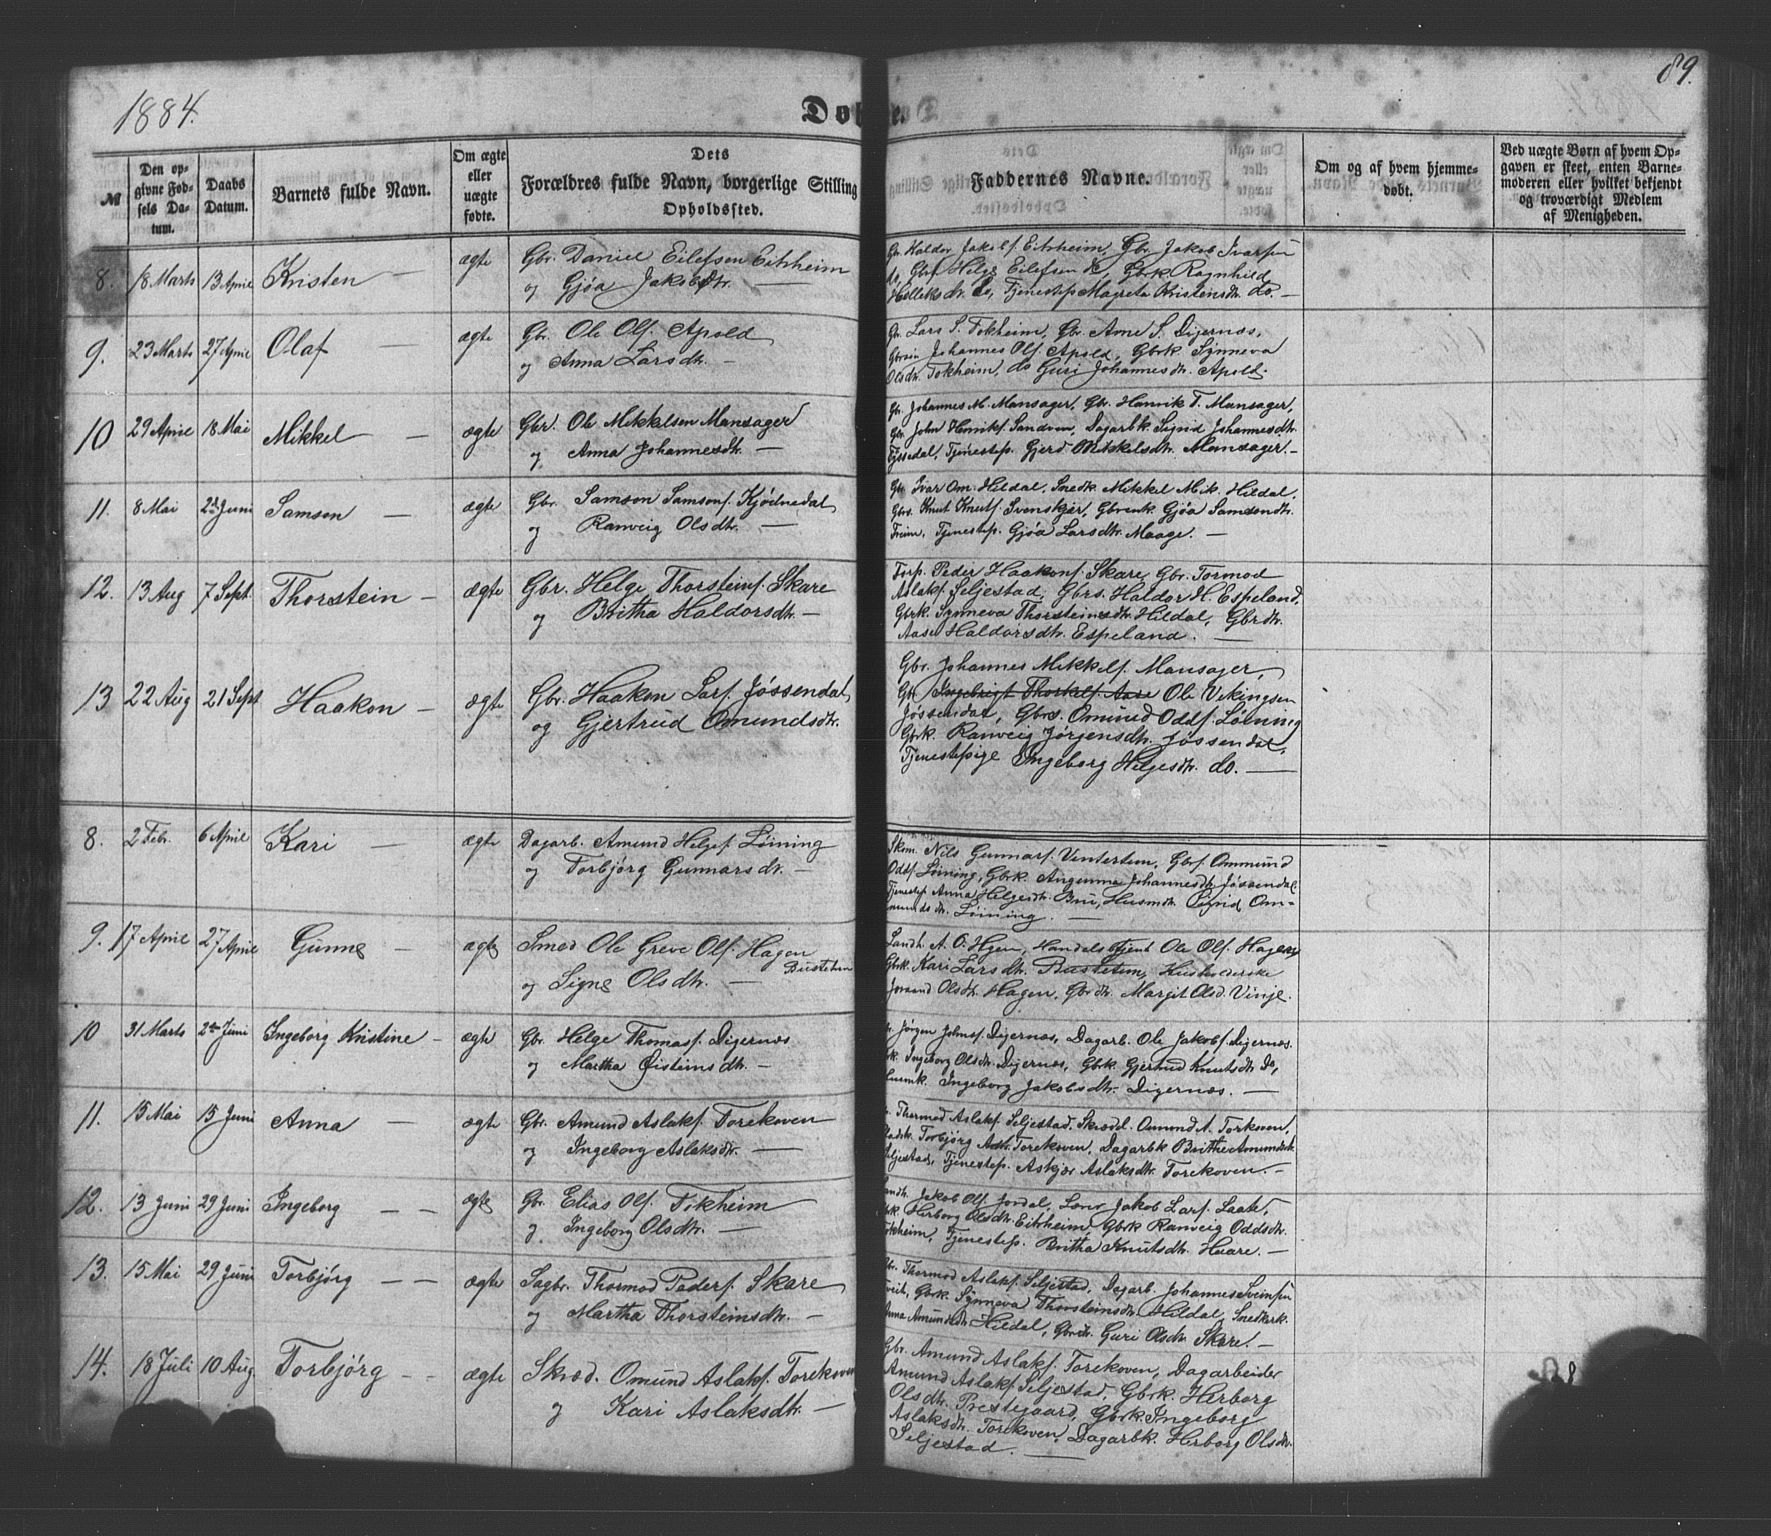 1884.
Døbte.
89.
№
Den opgivne Fødsels Datum.
Daabs Datum.
Barnets fulde Navn.
Om ægte eller uægte fødte.
Dets Forældres fulde Navn, borgerlige Stilling Opholdssted.
Faddernes Navne.
Om og af hvem hjemmedøbt.
Ved uægte Børn af hvem Opgaven er skeet, enten Barnemoderen eller hvilket bekjendt og troværdigt Medlem af Menigheden.
8. 18 Marts 13 April Kristen — ægte Gbr. Daniel Eilefsen Eitrheim
og Gjøa Jakobsdtr. —
Gr. Haldor Jakobs. Eitrheim, Gbr. Jakob Ivarsen
do, Gbrs. Helge Eilefsen do, Gbrk Ragnhild
Helleksdtr. do, Tjenestep. Magreta Kristensdtr. do. —
9. 23 Marts 27 April Olaf — ægte Gbr. Ole Ols. Apold
og Anna Larsdtr. —
Gr. Lars S. Tokheim, Gbr. Arne S. Digernæs,
Johannes Ols. Apold, Gbrk. Synneva
Olsdtr. Tokheim, do Guri Johannesdtr. Apold.
10 29 April 18 Mai Mikkel — ægte Gbr. Ole Mikkelsen Mansager
og Anna Johannesdtr. —
Gr. Johannes M. Mansager, Gbr. Hanrik T. Mansager,
Gbr. John Henriks. Sandven, Dagarbk. Sigrid Johannesdtr.
Tyssedal, Tjenestep. Gjerd Mikkelsdtr. Mansager. —
11. 8 Mai 2d Juni Samson — ægte Gbr. Samson Samsons. Kjødnedal
og Ranveig Olsdtr. —
Gbr Ivar Om. Hildal, Snedk. Mikkel Mik. Hildal,
Gbrs. Knut Knuts. Svenskjær, Gbrenk. Gjøa Samsondtr.
Freim, Tjenestep. Gjøa Larsdtr. Maage. —
12. 13 Aug 7 Sept Thorstein — ægte Gbr. Helge Thorsteins. Skare
og Britha Haldorsdtr. —
Forp. Peder Haakons. Skare, Gbr. Tormod
Aslaks. Seljestad, Gbrs. Haldor H. Espeland,
Gbrk. Synneva Thorsteinsdtr. Hildal, Gbrdtr.
Aase Haldorsdtr. Espeland. —
13 22 Aug 21 Sept Haakon — ægte Gbr. Haakon Lars. Jøssendal,
og Gjertrud Omundsdtr.
Gbr. Johannes Mikkels. Mansager,
Gbr. Ingebrigt Thorkels. Aase Ole Vikingsen
Jøssendal, Gbrs. Omund Odds. Løining
Gbrk. Ranveig Jørgensdtr. Jøssendal,
Tjenestepige Ingeborg Helgesdtr. do. —
8. 2 Febr. 6 April Kari — ægte Dagarb. Amund Helges. Løining
og Torbjørg Gunnarsdtr. —
Skom. Nils Gunnars. Vintertun, Gbrs. Ommund
Odds. Løining, Gbrk. Angunna Johannesdtr. Jøssendal
Tjenestep. Anna Helgesdtr. Bru, Husmdtr. Sigrid Om-
mundsdtr. Løining. —
9. 17 April 27 April Gunne — ægte Smed Ole Greve Ols. Hagen
Bustetun
og Signe Olsdtr. —
Landh. A. O. Hgen, Handelsbetjent Ole Ols. Hagen,
Gbrk. Kari Larsdtr. Bustetun, Husholderske
Jorand Olsdtr. Hagen, Gbrdtr. Margit Olsd. Vinje.
10 31 Marts 2den Juni Ingeborg Kristine — ægte Gbr. Helge Thomas. Digernæs
og Martha Øisteinsdtr. —
Jørgen Johns. Digernæs, Dagarb. Ole Jakobs. Digernæs.
Ingeborg Olsdtr. Digernæs, Gbrk. Gjertrud Knutsdtr. Do,
Husmk. Ingeborg Jakobsdtr. Digernæs. —
11. 15 Mai 15 Juni Anna — ægte Gbr. Amund Aslaks. Torekoven
og Ingeborg Aslaksdtr. —
Thormod Aslaks. Seljestad, Skrædd. Omund A. Torkoven,
Torbjørg Asdtr. Torekoven, Dagarbk Brithe Amundsdtr.
Seljestad, Tjenestep. Askjær Aslaksdtr. Torekoven. —
12. 13 Juni 29 Juni Ingeborg — — ægte Gbr. Elias Ols. Tokheim
og Ingeborg Olsdtr. —
Jakob Ols. Jordal, Lærer Jakob Lars. Laate,
Herborg Olsdtr. Eitrheim, Gbrk Ranveig Oddsdtr.
Tokheim, Tjenestep. Britha Knutsdtr. Huare. —
13. 15 Mai 29 Juni Torbjørg — — ægte Sagbr. Thormod Peders. Skare
og Martha Thorsteinsdtr. —
Gbr. Thormod Aslaks. Seljestad, Dagarb. Johannes Sveinsen
Gbrk. Synneva Thorsteinsdtr. Hildal, Snedkerk.
Anna Amundsdtr Hildal, Gbrdtr. Guri Olsdtr. Skare. —
14. 18 Juli 10 Aug. Torbjørg — — ægte Skræd. Omund Aslaks. Torekoven
og Kari Aslaksdtr. —
Gbr. Amund Aslaks. Torekoven, Dagarbeider
Amund Aslaks. Seljestad, Gbrk. Herborg
Olsdtr. Prestegaard, Gbrk. Ingeborg
Aslaksdtr. Torekoven, Dagarbk. Herborg Olsdtr.
Seljestad. —